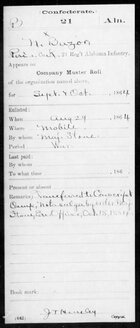 Confederate.
21 Ala.
N. Duzon
Pvt., Co. K, 21 Reg't Alabama Infantry.
Appears on
Company Muster Roll
of the organization named above,
for Sept & Oct, 1864
Enlisted:
When Aug 29, 1864
Where Mobile
By whom Maj. Stone
Period War
Last paid:
By whom
To what time , 186
Present or absent
Remarks: Transferred to Conscript
Camp, by order
Oct. 18, 1864
Book mark:
(642)